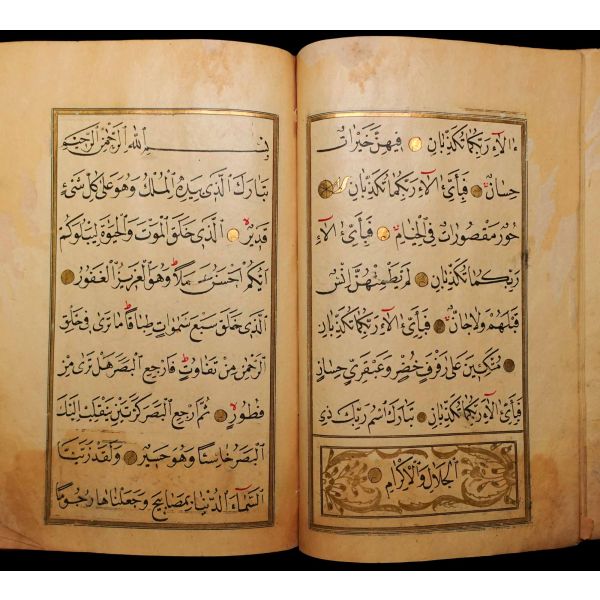 ءالاء ربكما تكذبان فيهن خيرات
حسان فبأي ءالاء ربكما تكذبان
حور مقصورات في الخيام فبأي ءالاء
ربكما تكذبان لم يطمثهن انس
قبلهم ولا جان فبأي ءالاء ربكما تكذبان
متكئين على رفرف خضر وعبقري حسان
فبأي ءالاء ربكما تكذبان تبارك اسم ربك ذي
الجلال والاكرام
بسم الله الرحمن الرحيم
تبارك الذي بيده الملك وهو على كل شيء
قدير الذي خلق الموت والحيوة ليبلوكم
ايكم احسن عملا وهو العزيز الغفور
الذي خلق سبع سموات طباقا ما ترى في خلق
الرحمن من تفاوت فارجع البصر هل ترى من
فطور ثم ارجع البصر كرتين ينقلب اليك
البصر خاسئا وهو حسير ولقد زينا
السماء الدنيا بمصابيح وجعلناها رجوما